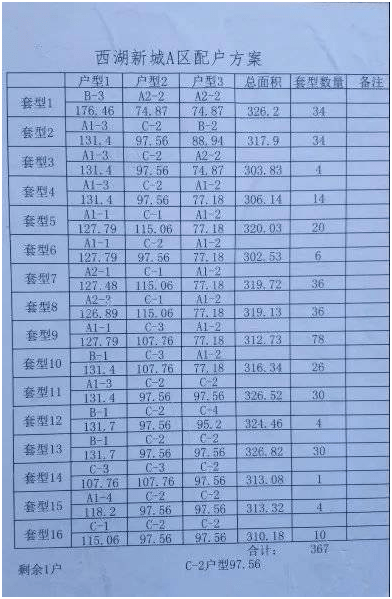 西湖新城A区配户方案
户型1 户型2 户型3 总面积 套型数量 备注
套型1 B-3 A2-2 A2-2
176.46 74.87 74.87 326.2 34
套型2 A1-3 C-2 B-2
131.4 97.56 88.94 317.9 34
套型3 A1-3 C-2 A2-2
131.4 97.56 74.87 303.83 4
套型4 A1-3 C-2 A1-2
131.4 97.56 77.18 306.14 14
套型5 A1-1 C-1 A1-2
127.79 115.06 77.18 320.03 20
套型6 A1-1 C-2 A1-2
127.79 97.56 77.18 302.53 6
套型7 A2-1 C-1 A1-2
127.48 115.06 77.18 319.72 36
套型8 A2-3 C-1 A1-2
126.89 115.06 77.18 319.13 36
套型9 A1-1 C-3 A1-2
127.79 107.76 77.18 312.73 78
套型10 B-1 C-3 A1-2
131.4 107.76 77.18 316.34 26
套型11 A1-3 C-2 C-2
131.4 97.56 97.56 326.52 30
套型12 B-1 C-2 C-4
131.7 97.56 95.2 324.46 4
套型13 B-1 C-2 C-2
131.7 97.56 97.56 326.82 30
套型14 C-3 C-3 C-2
107.76 107.76 97.56 313.08 1
套型15 A1-4 C-2 C-2
118.2 97.56 97.56 313.32 4
套型16 C-1 C-2 C-2
115.06 97.56 97.56 310.18 10
合计: 367
剩余1户 C-2户型97.56